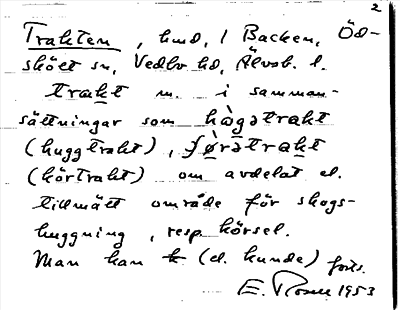 2
Trakten, hmd, / Backen, Öd-
sköls sn, Vedbo hd, Älvsb. l.
trakt m. i samman-
sättningar som hågətrakt
(huggtrakt), fø̀rətrakt
(körtrakt) om avdelat el.
tillmätt område för skogs-
huggning, resp. körsel.
Man kan k (el. kunde) forts.
E. Rosell 1953